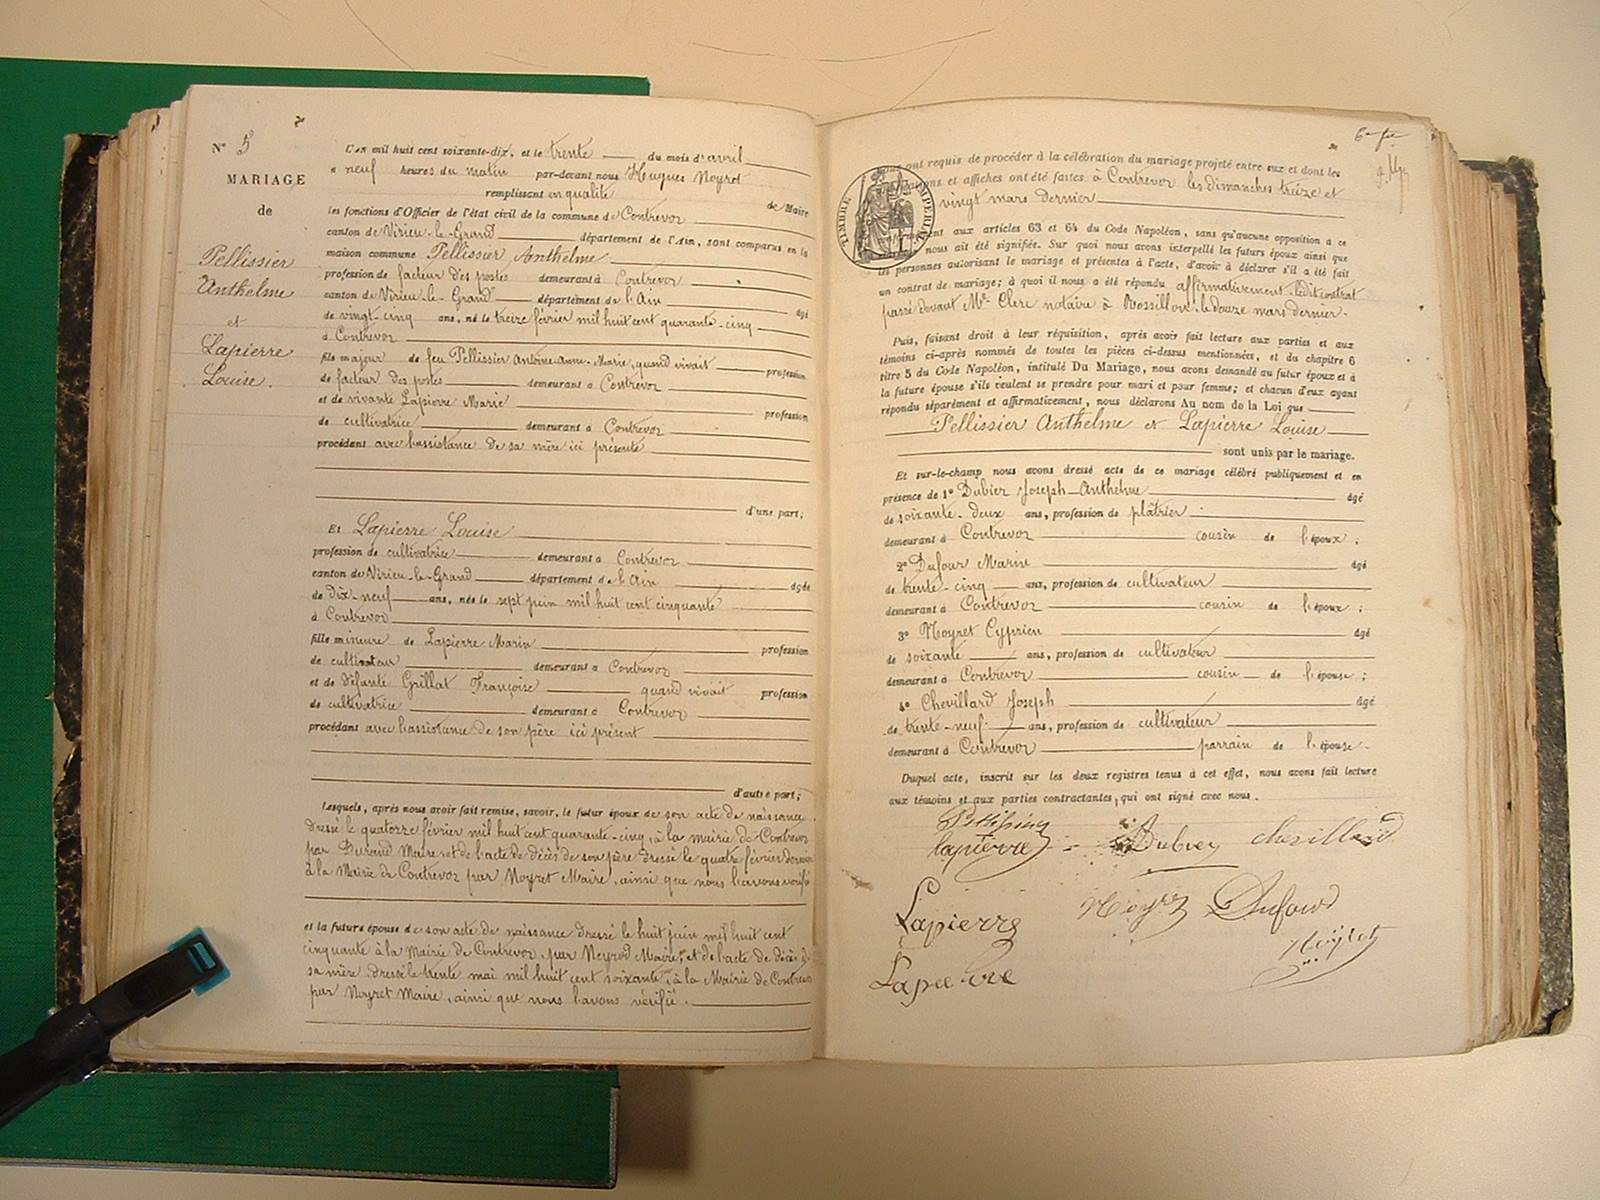 N° 5
MARIAGE
de
Pellissier
Anthelme
et
Lapierre
Louise.
L'an mil huit cent soixante-dix, et le trente du mois d'avril
à neuf heures du matin par-devant nous Hugues Noyret
remplissant en qualité de Maire
les fonctions d'Officier de l'état civil de la commune de Contrevoz
canton de Virieu-le-Grand département de l'Ain, sont comparus en la
maison commune Pellissier Anthelme
profession de facteur des postes demeurant à Contrevoz
canton de Virieu-le-Grand département de l'Ain âgé
de vingt-cinq ans, né le treize février mil huit cent quarante-cinq
à Contrevoz
fils majeur de feu Pellissier Antoine Anne-Marie, quand vivait profession
de facteur des postes demeurant à Contrevoz
et de vivante Lapierre Marie profession
de cultivatrice demeurant à Contrevoz
procédant avec l'assistance de sa mère ici présente
d'une part;
Et Lapierre Louise
profession de cultivatrice demeurant à Contrevoz
canton de Virieu-le-Grand département de l'Ain âgée
de dix-neuf ans, née le sept juin mil huit cent cinquante
à Contrevoz
fille mineure de Lapierre Marin profession
de cultivateur demeurant à Contrevoz
et de défunte Grillat Françoise quand vivait profession
de cultivatrice demeurant à Contrevoz
procédant avec l'assistance de son père ici présent
d'autre part;
Lesquels, après nous avoir fait remise, savoir, le futur époux de son acte de naissance
dressé le quatorze février mil huit cent quarante-cinq, à la mairie de Contrevoz
par Durand Maire et de l'acte de décès de son père dressé le quatre février dernier
à la Mairie de Contrevoz par Noyret Maire, ainsi que nous l'avons vérifié
et la future épouse de son acte de naissance dressé le huit juin mil huit cent
cinquante à la Mairie de Contrevoz, par Neyrod Maire, et de l'acte de décès de
sa mère dressé le trente mai mil huit cent soixante, à la Mairie de Contrevoz
par Noyret Maire, ainsi que nous l'avons vérifié.
6e
TIMBRE IMPERIAL
ont requis de procéder à la célébration du mariage projeté entre eux et dont les
publications et affiches ont été faites à Contrevoz les dimanches treize et
vingt mars dernier
aux articles 63 et 64 du Code Napoléon, sans qu'aucune opposition à ce
nous ait été signifiée. Sur quoi nous avons interpellé les futurs époux ainsi que
les personnes autorisant le mariage et présentes à l'acte, d'avoir à déclarer s'il a été fait
un contrat de mariage; à quoi il nous a été répondu affirmativement. ledit contrat
passé devant Me Clerc notaire à Rossillon, le douze mars dernier.
Puis, faisant droit à leur réquisition, après avoir fait lecture aux parties et aux
témoins ci-après nommés de toutes les pièces ci-dessus mentionnées, et du chapitre 6
titre 5 du Code Napoléon, intitulé Du Mariage, nous avons demandé au futur époux et à
la future épouse s'ils veulent se prendre pour mari et pour femme; et chacun d'eux ayant
répondu séparément et affirmativement, nous déclarons Au nom de la Loi que
Pellissier Anthelme et Lapierre Louise
sont unis par le mariage.
Et sur-le-champ nous avons dressé acte de ce mariage célébré publiquement et en
présence de 1° Dubier Joseph-Anthelme âgé
de soixante-deux ans, profession de plâtrier
demeurant à Contrevoz cousin de l'époux;
2° Dufour Marin âgé
de trente-cinq ans, profession de cultivateur
demeurant à Contrevoz cousin de l'époux;
3° Noyret Cyprien âgé
de soixante ans, profession de cultivateur
demeurant à Contrevoz cousin de l'épouse;
4° Chevillard Joseph âgé
de trente-neuf ans, profession de cultivateur
demeurant à Contrevoz parrain de l'épouse.
Duquel acte, inscrit sur les deux registres tenus à cet effet, nous avons fait lecture
aux témoins et aux parties contractantes, qui ont signé avec nous.
Pellissier
lapierre Dubier chevillard
Lapierre Noyret Dufour
Noyret